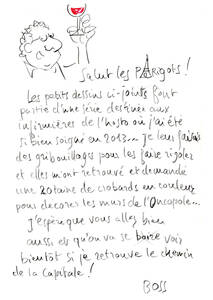 Salut les PARigots !
Les petits dessins ci-joints font
partie d'une série destinée aux
infirmières de l'hosto où j'ai été
si bien soigné en 2013... Je leur faisais
des gribouillages pour les faire rigoler
et elles m'ont retrouvé et demandé
une 20taine de crobards en couleur
pour décorer les murs de l'Oncopole...
J'espère que vous allez bien
aussi et qu'on va se boire voir
bientôt si je retrouve le chemin
de la Capitale !
BOSS